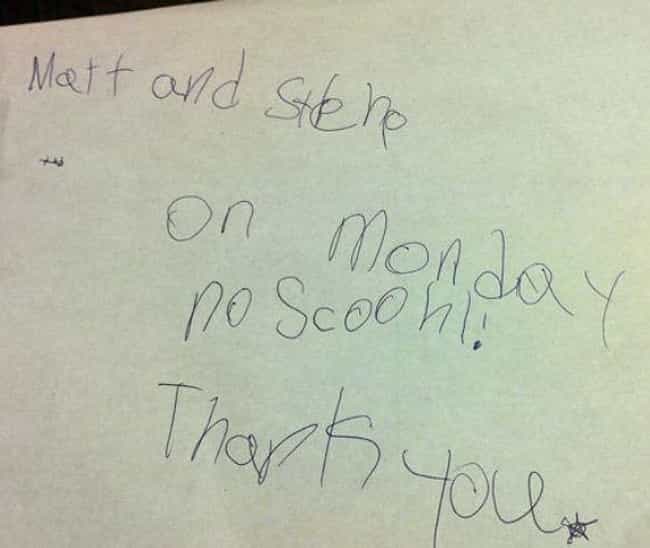 Matt and Stehp
on Monday
no Scoohl!
Thank you